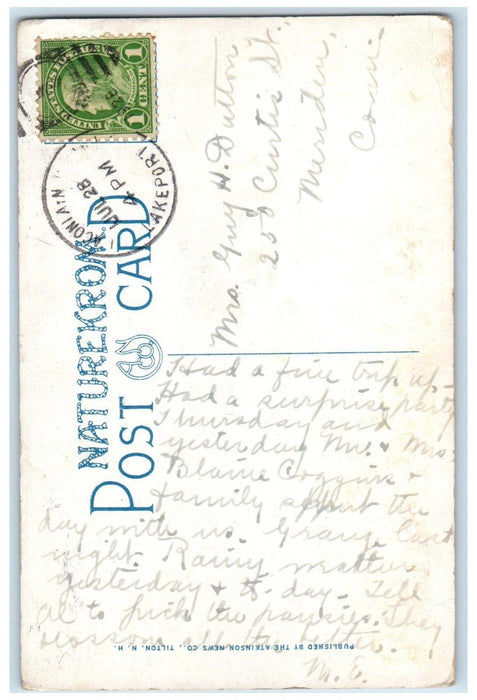 Mrs. Guy H. Dutton
200 Curtis St.
Meriden,
Conn.
NATUREKROM
POST CARD
LACONIA N
LAKEPORT
JUL 28
4 PM
UNITED STATES POSTAGE
1
1
Had a fine trip up -
Had a surprise party
Thursday and
yesterday Mr. & Mrs.
Blaine Coggins &
family spent the
day with us. Grange last
night. Rainy
yesterday & to-day - Tell
Al to pick the pansies. They
blossom all the better.
M. E.
PUBLISHED BY THE ATKINSON NEWS CO., TILTON, N. H.